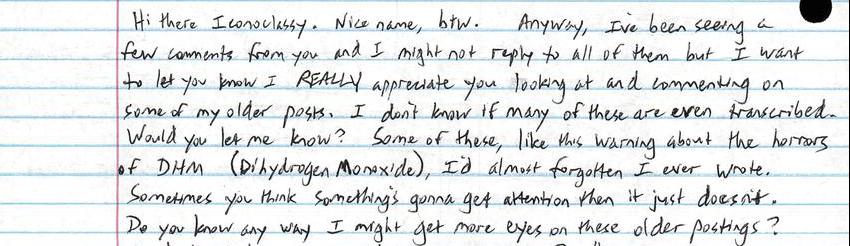 Hi there Iconoclassy. Nice name, btw. Anyway, I've been seeing a
few comments from you and I might not reply to all of them but I want
to let you know I REALLY appreciate you looking at and commenting on
some of my older posts. I don't know if many of these are even transcribed.
Would you let me know? Some of these, like this warning about the horrors
of DHM (Dihydrogen Monoxide), I'd almost forgotten I ever wrote.
Sometimes you think something's gonna get attention then it just doesn't.
Do you know any way I might get more eyes on these older postings?